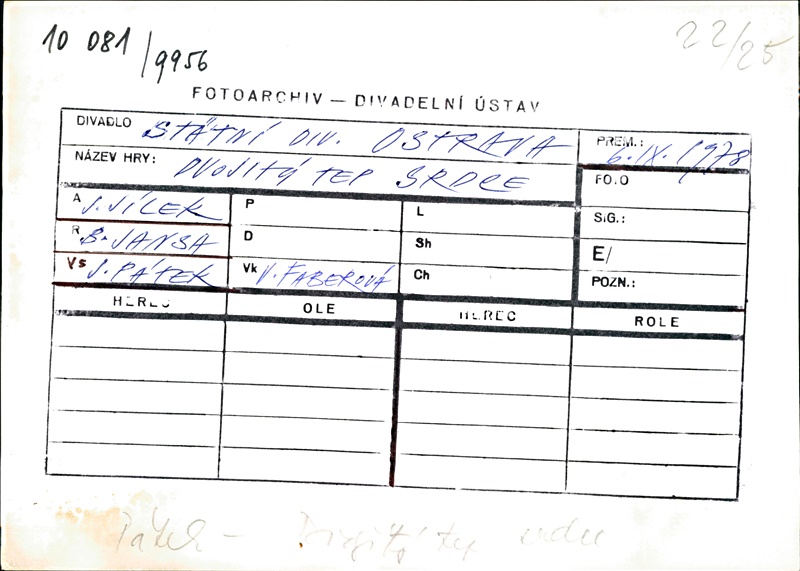 10 081/9956
22/25
FOTOARCHIV — DIVADELNÍ ÚSTAV
DIVADLO STÁTNÍ DIV. OSTRAVA
PREM.: 6.IX.1978
NÁZEV HRY: DVOJITÝ TEP SRDCE
FO.O
A J. JÍLEK
P
L
SIG.:
R B. JANSA
D
Sh
E/
Vs J. PÁTEK
Vk V. FABEROVÁ
Ch
POZN.:
HEREC OLE HEREC ROLE
Pátek – Dvojitý tep srdce